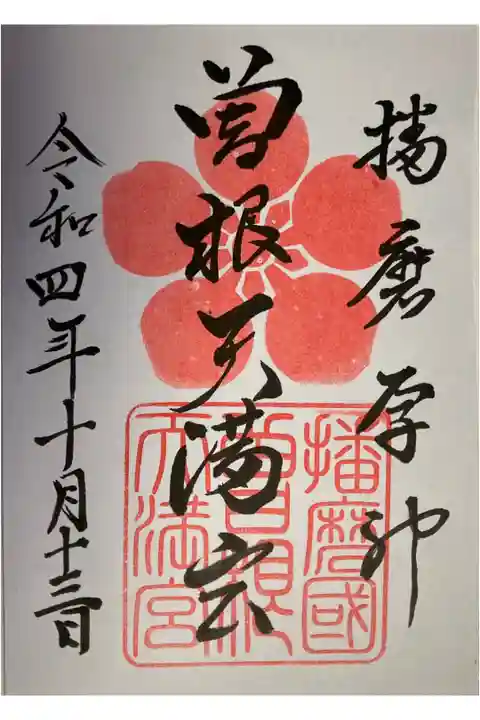 播磨 神
曽根天満宮
令和四年十月十三日
播磨國
曽根
天満宮